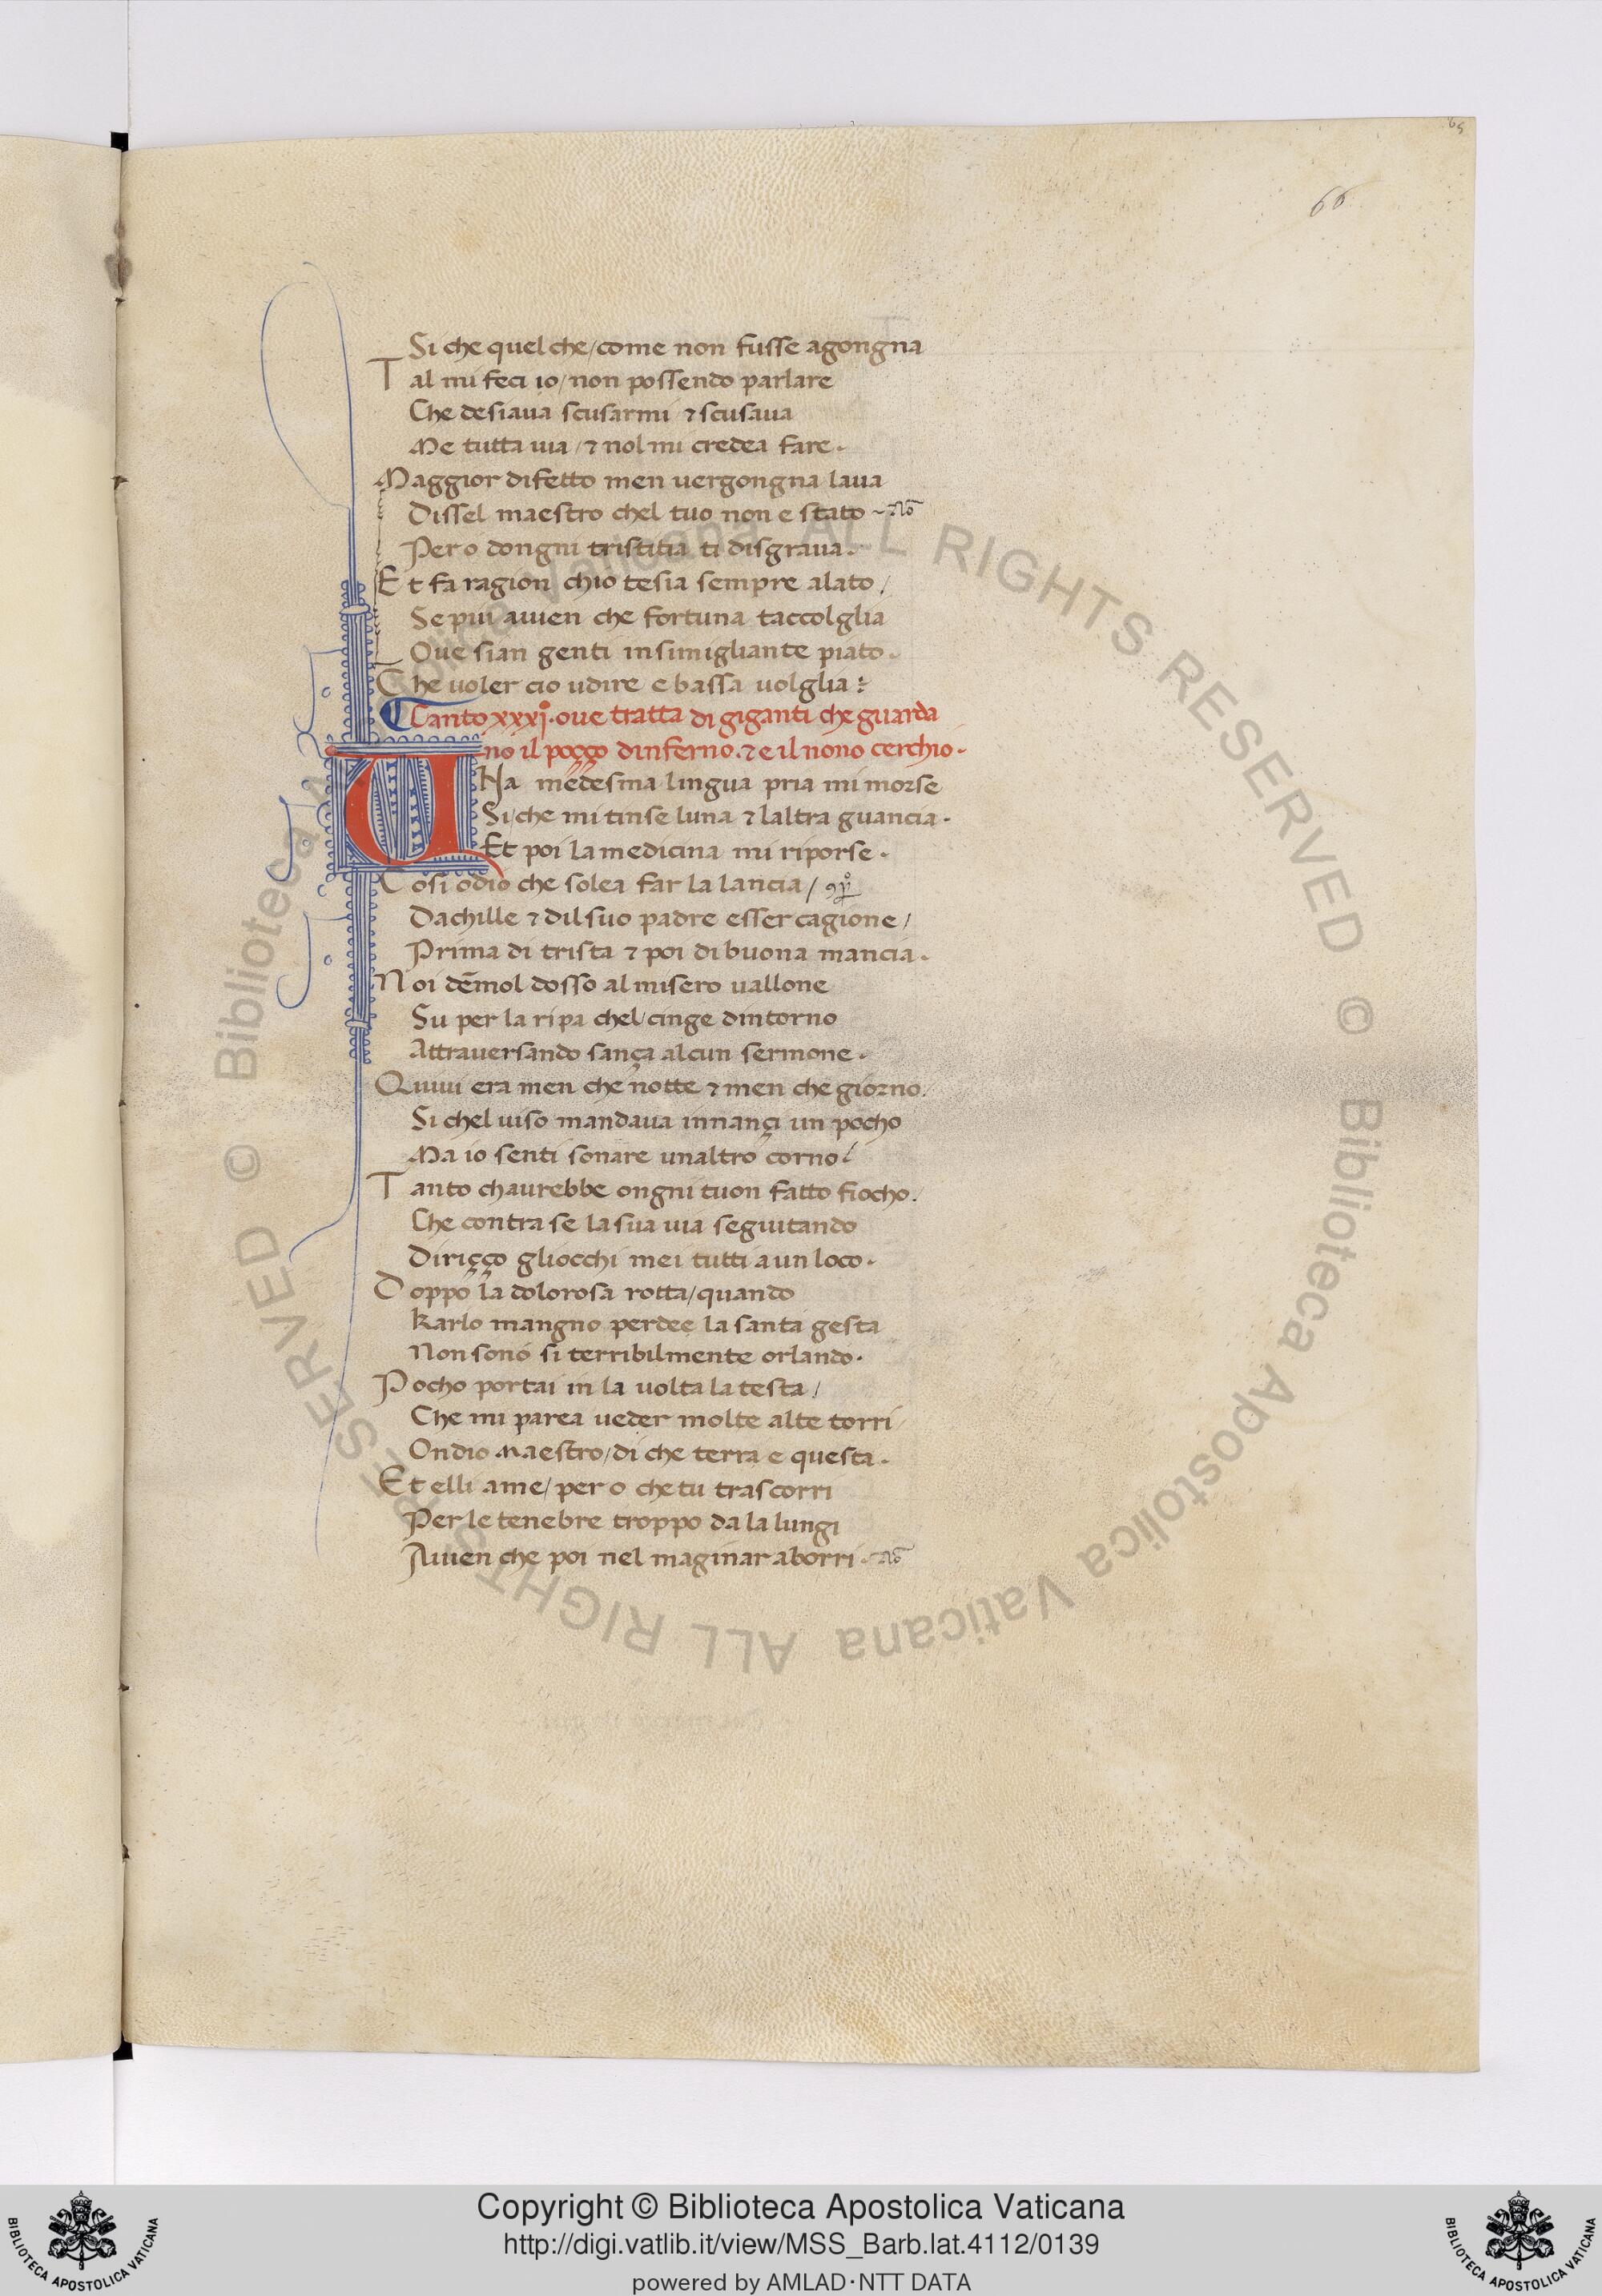 65
66
Si che quel che/come non fusse agongna
Tal mi feci io/non possendo parlare
Che desiaua scusarmi ⁊ scusaua
Me tutta uia/⁊ nol mi credea fare.
Maggior difetto men uergongna laua
Dissel maestro chel tuo non e stato ~ No͞
Pero dongni tristitia ti disgraua.
Et fa ragion chio te sia sempre alato/
Se piu auuen che fortuna taccolglia
Oue sian genti in simigliante piato.
Che uoler cio udire e bassa uolglia:
Canto xxxjº. oue tratta di giganti che guarda
no il poçço dinferno. ⁊ e il nono cerchio.
UNa medesma lingua pria mi morse
Si/che mi tinse luna ⁊ laltra guancia.
Et poi la medicina mi riporse.
Cosi odio che solea far la lancia/
Dachille ⁊ dil suo padre esser cagione/
Prima di trista ⁊ poi di buona mancia.
Noi dēmol dosso al misero uallone
Su per la ripa chel/cinge dintorno
Attrauersando sança alcun sermone.
Quiui era men che notte ⁊ men che giorno.
Si chel uiso mandaua innançi un pocho
Ma io senti sonare unaltro corno/
Tanto chaurebbe ongni tuon fatto fiocho.
Che contra se la sua uia seguitando
Diriçço gliocchi mei tutti a un loco.
Doppo la dolorosa rotta/quando
Karlo mangno perdee la santa gesta
Non sono si terribilmente orlando.
Pocho portai in la uolta la testa/
Che mi parea ueder molte alte torri
Ondio Maestro/di che terra e questa.
Et elli ame/pero che tu trascorri
Per le tenebre troppo da la lungi
Auuen che poi nel maginar aborri. No͞
© Biblioteca Apostolica Vaticana ALL RIGHTS RESERVED © Biblioteca Apostolica Vaticana ALL RIGHTS RESERVED
Copyright © Biblioteca Apostolica Vaticana
http://digi.vatlib.it/view/MSS_Barb.lat.4112/0139
powered by AMLAD·NTT DATA
BIBLIOTECA APOSTOLICA VATICANA
BIBLIOTECA APOSTOLICA VATICANA